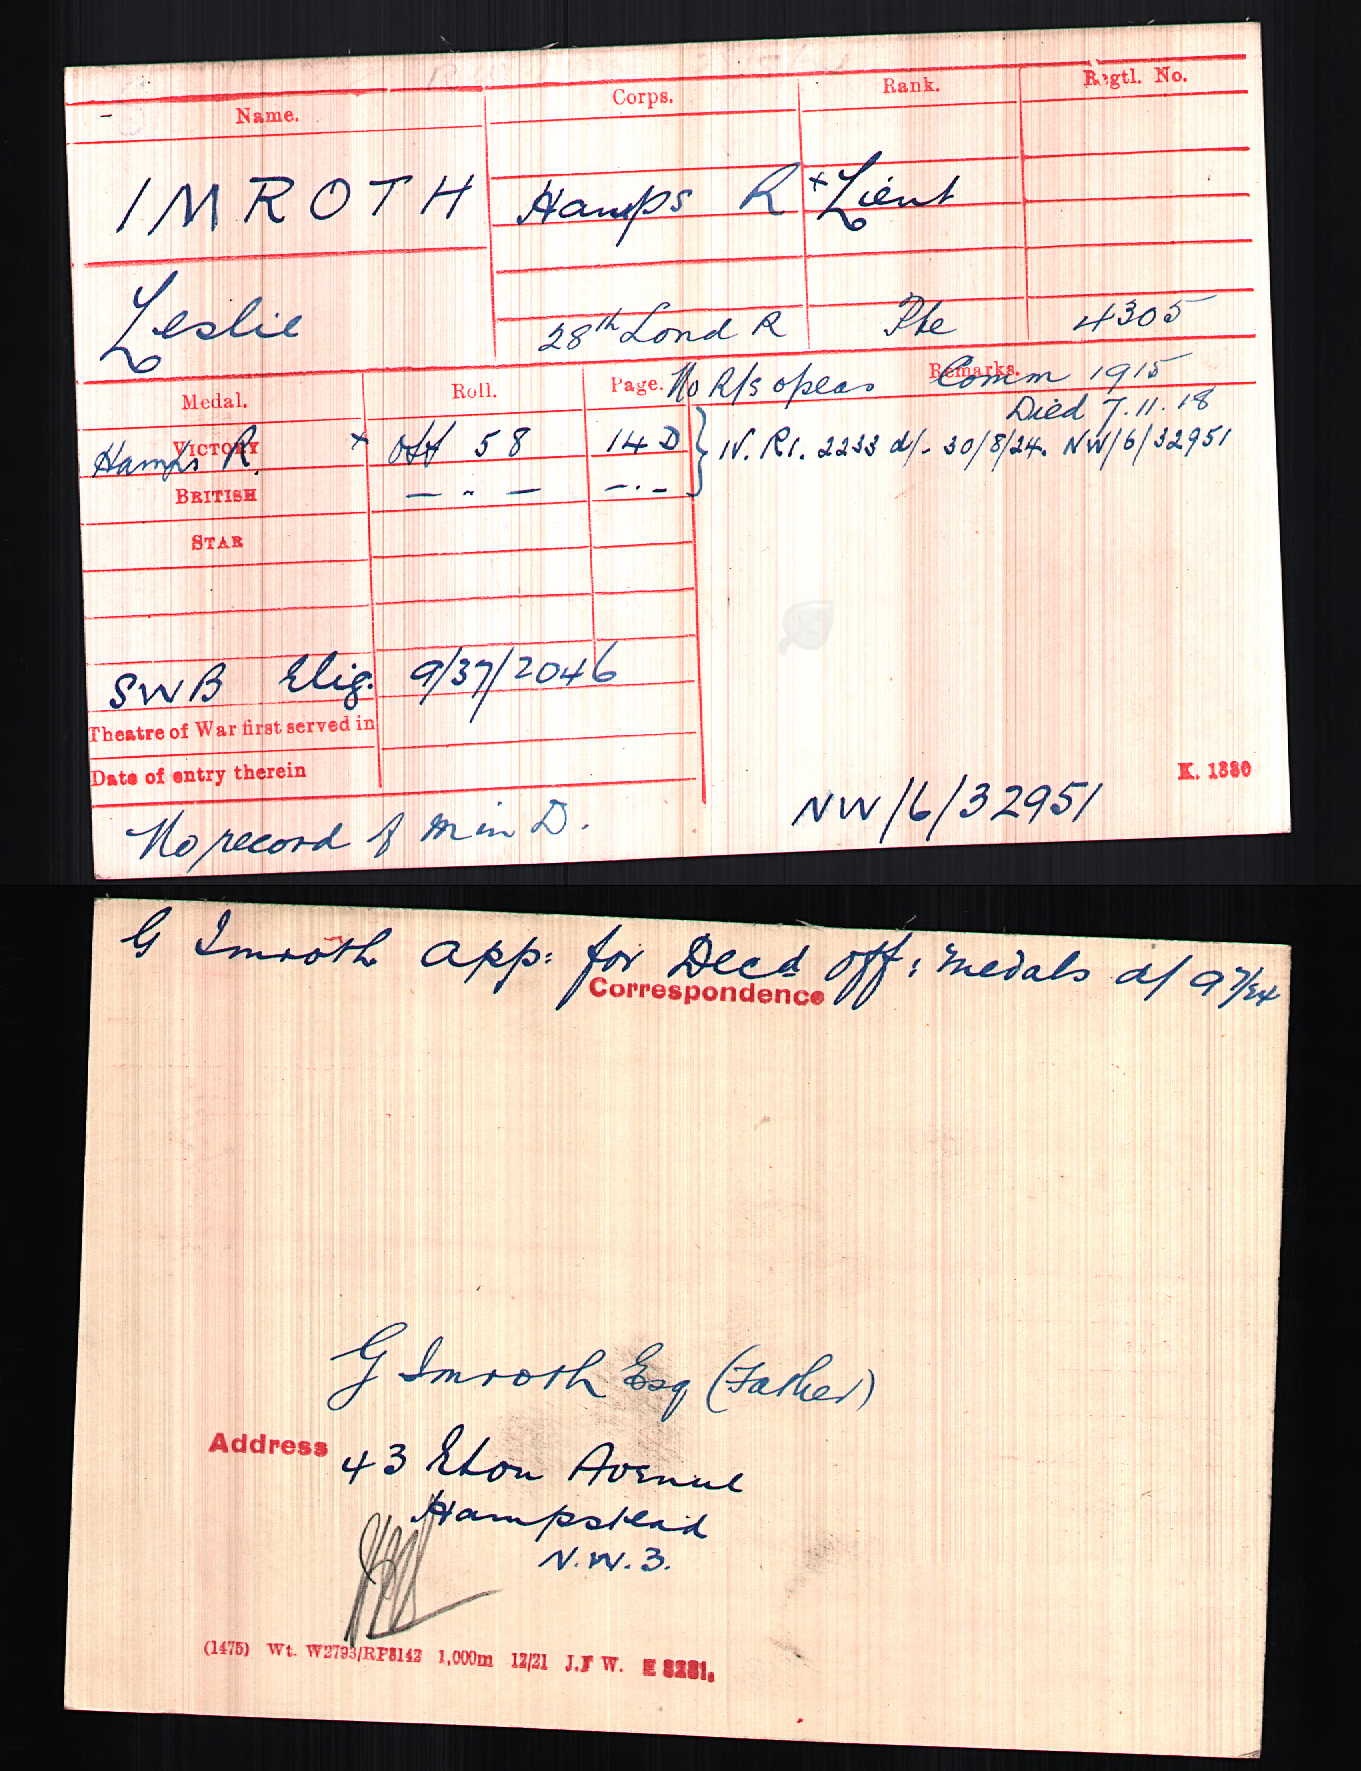 Name. Corps. Rank. Regtl. No.
IMROTH Hamps R x Lieut
Leslie 28th Lond R Pte 4305
Medal. Roll. Page. Remarks.
No R/s opeas Comm 1915
Died 7.11.18
VICTORY Hamps R. x Off 58 14 D } IV. R1. 2233 d/- 30/8/24. NW/6/32951
BRITISH — " — — . —
STAR
SWB Elig. 9/37/2046
Theatre of War first served in
Date of entry therein
K. 1380
No record of M in D. NW/6/32951
G Imroth app: for Decd off: medals d/ 9 7/24
Correspondence
G Imroth Esq (Father)
Address 43 Eton Avenue
Hampstead
N.W.3.
(1475) Wt. W2793/RP8142 1,000m 12/21 J.F W. E 8281.